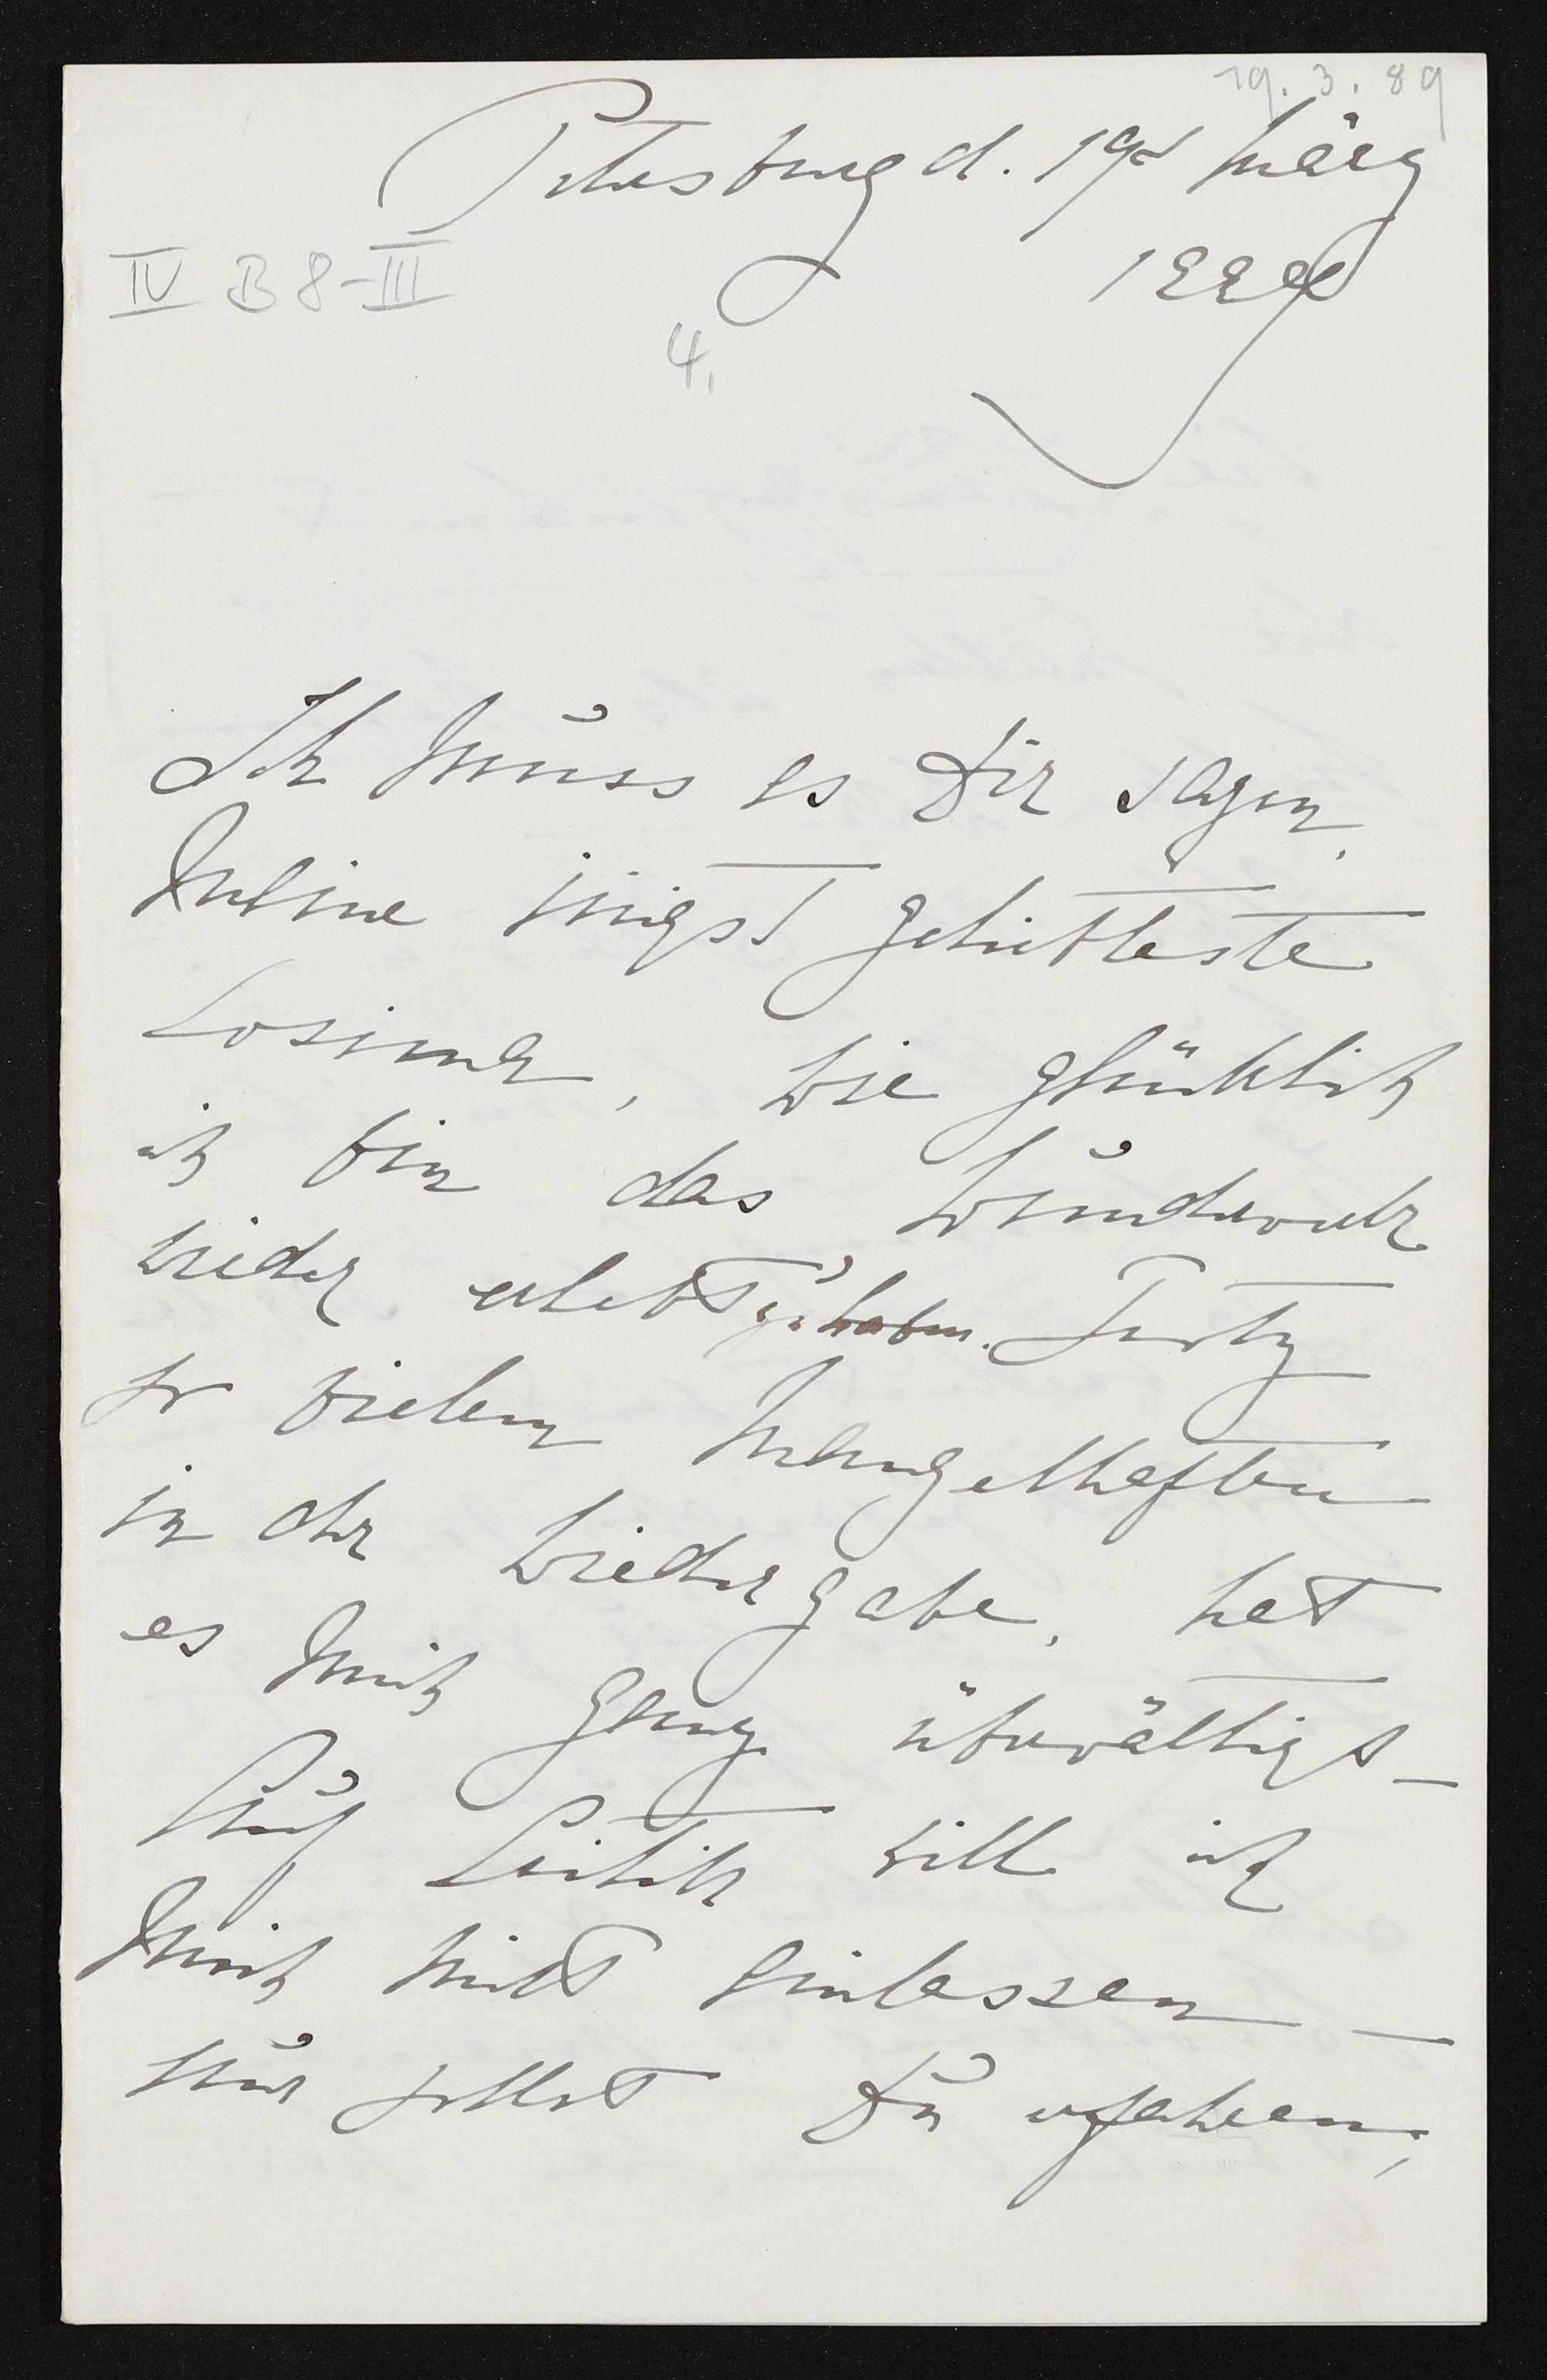 19. 3. 89
Petersburg d. 19ᵗ März
IV B 8-III
1889
4.
Ich muss es Dir sagen,
Meine innigst geliebteste
Cosima, wie glücklich
ich bin das Wunderwerk
wieder erlebt zu haben. Trotz
so vielem Mangelhaften
in der Wiedergabe, hat
es mich ganz überwältigt _
Auf Critik will ich
mich nicht einlassen _
nur sollst Du erfahren,